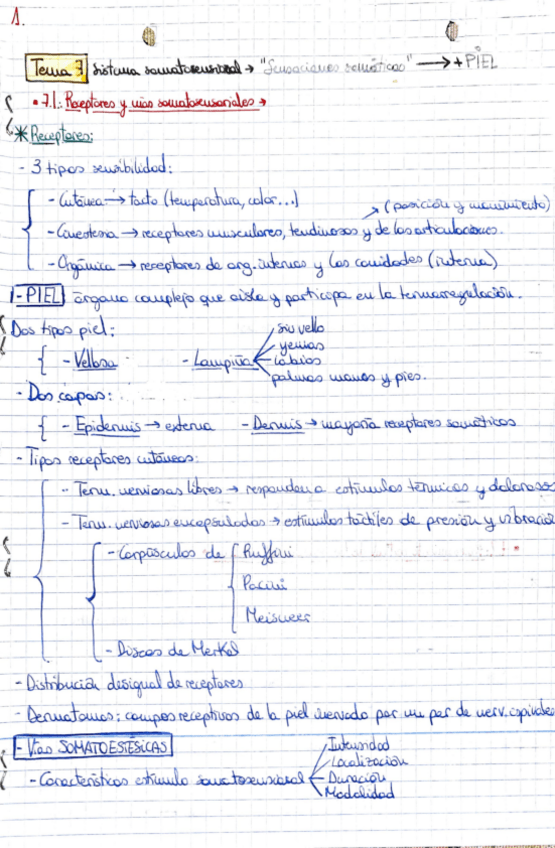 1.
Tema 7 sistema somatosensorial → "Sensaciones somáticas" → + PIEL
• 7.1: Receptores y vías somatosensoriales →
* Receptores:
- 3 tipos sensibilidad:
- Cutánea → tacto (temperatura, calor...)
(posición y movimiento)
- Cinestesia → receptores musculares, tendinosos y de las articulaciones.
- Orgánica → receptores de org. internos y las cavidades (interna)
1- PIEL órgano complejo que aisla y participa en la termorregulación.
Dos tipos piel:
- Vellosa - Lampiña
sin vello
yemas
labios
palmas manos y pies.
- Dos capas:
- Epidermis → externa - Dermis → mayoría receptores somáticos
- Tipos receptores cutáneos:
- Term. nerviosas libres → responden a estímulos térmicos y dolorosos
- Term. nerviosas encapsuladas → estímulos táctiles de presión y vibración
- Corpúsculos de Ruffini
Pacini
Meissner
- Discos de Merkel
- Distribución desigual de receptores
- Dermatomas: campos receptivos de la piel inervado por un par de nerv. espinales
- Vías SOMATOESTÉSICAS
- Características estímulo somatosensorial
Intensidad
Localización
Duración
Modalidad